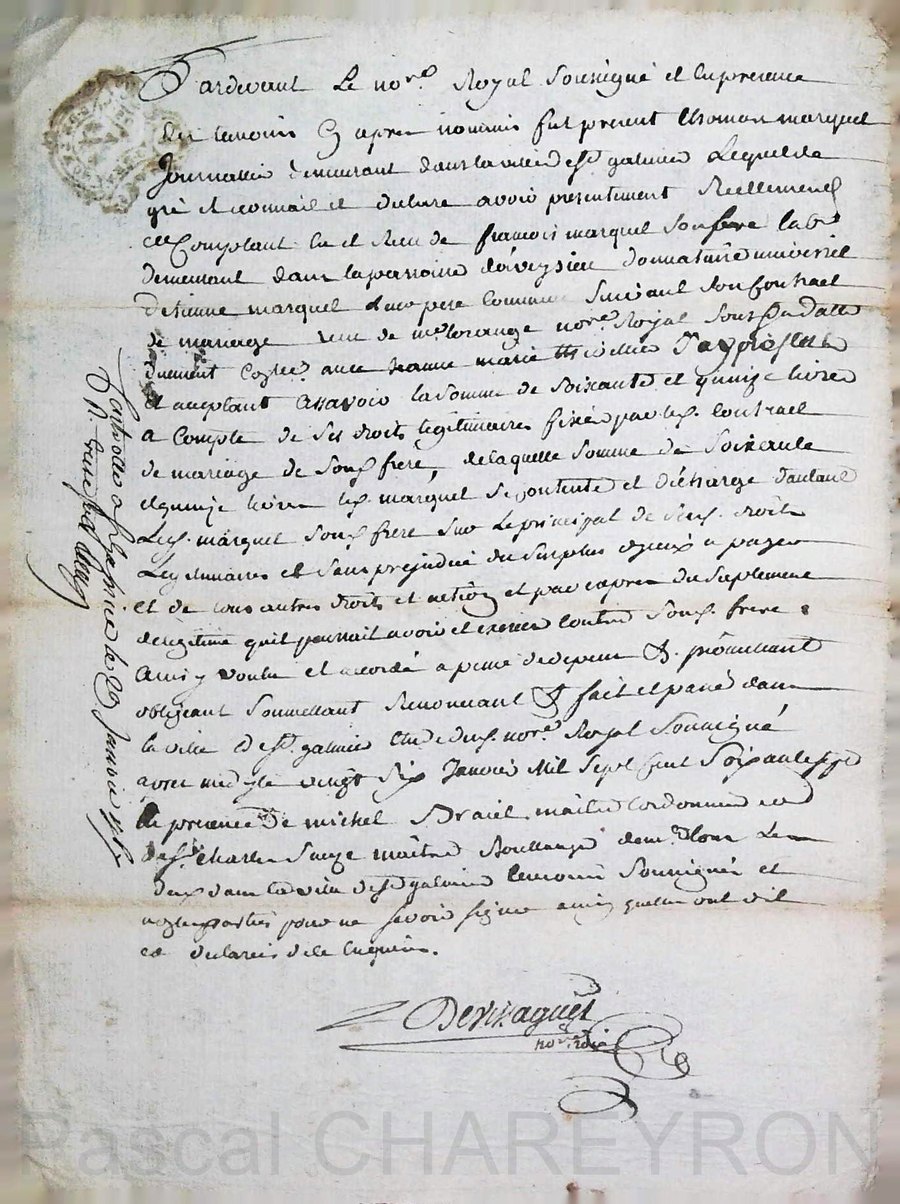 Pardevant Le nore. Royal Soussigné et en presence
des temoins Cy apres nommés fut present thomas marquet
Journallier demeurant dans la ville de st. galmier Lequel de
gré et connait et declare avoir presentement Reellement
et Comptant eu et Recu de francois marquet Son frere labr
demeurant dans la parroisse d'aveysieu donnataire universel
d'etienne marquet leur pere commun Suivant Son Contract
de mariage recu de me. lorange nore. Royal Sous Sa datte
duement Conlle. avec Jeanne marie
et acceptant assavoir la Somme de Soixante et quinze livres
a Compte de Ses droits legitimaires fixés par led. Contract
de mariage de Sond. frere, de laquelle Somme de Soixante
et quinze livres led. marquet Se contente et décharge d'autant
Led. marquet Sond. frere Sur Le principal de Sesd. droits
Legitimaires et Sans prejudice du Surplus a payer
et de tous autres droits et actions et par expres du Suplement
de legitime quil pourrait avoir et exercer contre Sond. frere
ainsi voulu et accordé a peine de depens &. promettant
obligeant Soumettant Renoncant & fait et passé dans
la ville de st. galmier Etude dud. nore. Royal Soussigné
avant midy le vingt Six Janvier Mil Sept Cent Soixante Sept
En presence de michel maitre Cordonnier et
de Sr. charles maître Boullanger demt. tous Les
deux dans la ville de st galmier temoins Soussignés et
non les parties pour ne Scavoir Signer ainsi quelles ont dit
et declaré de ce Enquises.
nore. roial
Controllé a St galmier le 29 Janvier 1767
R. treize Sols
Pascal CHAREYRON